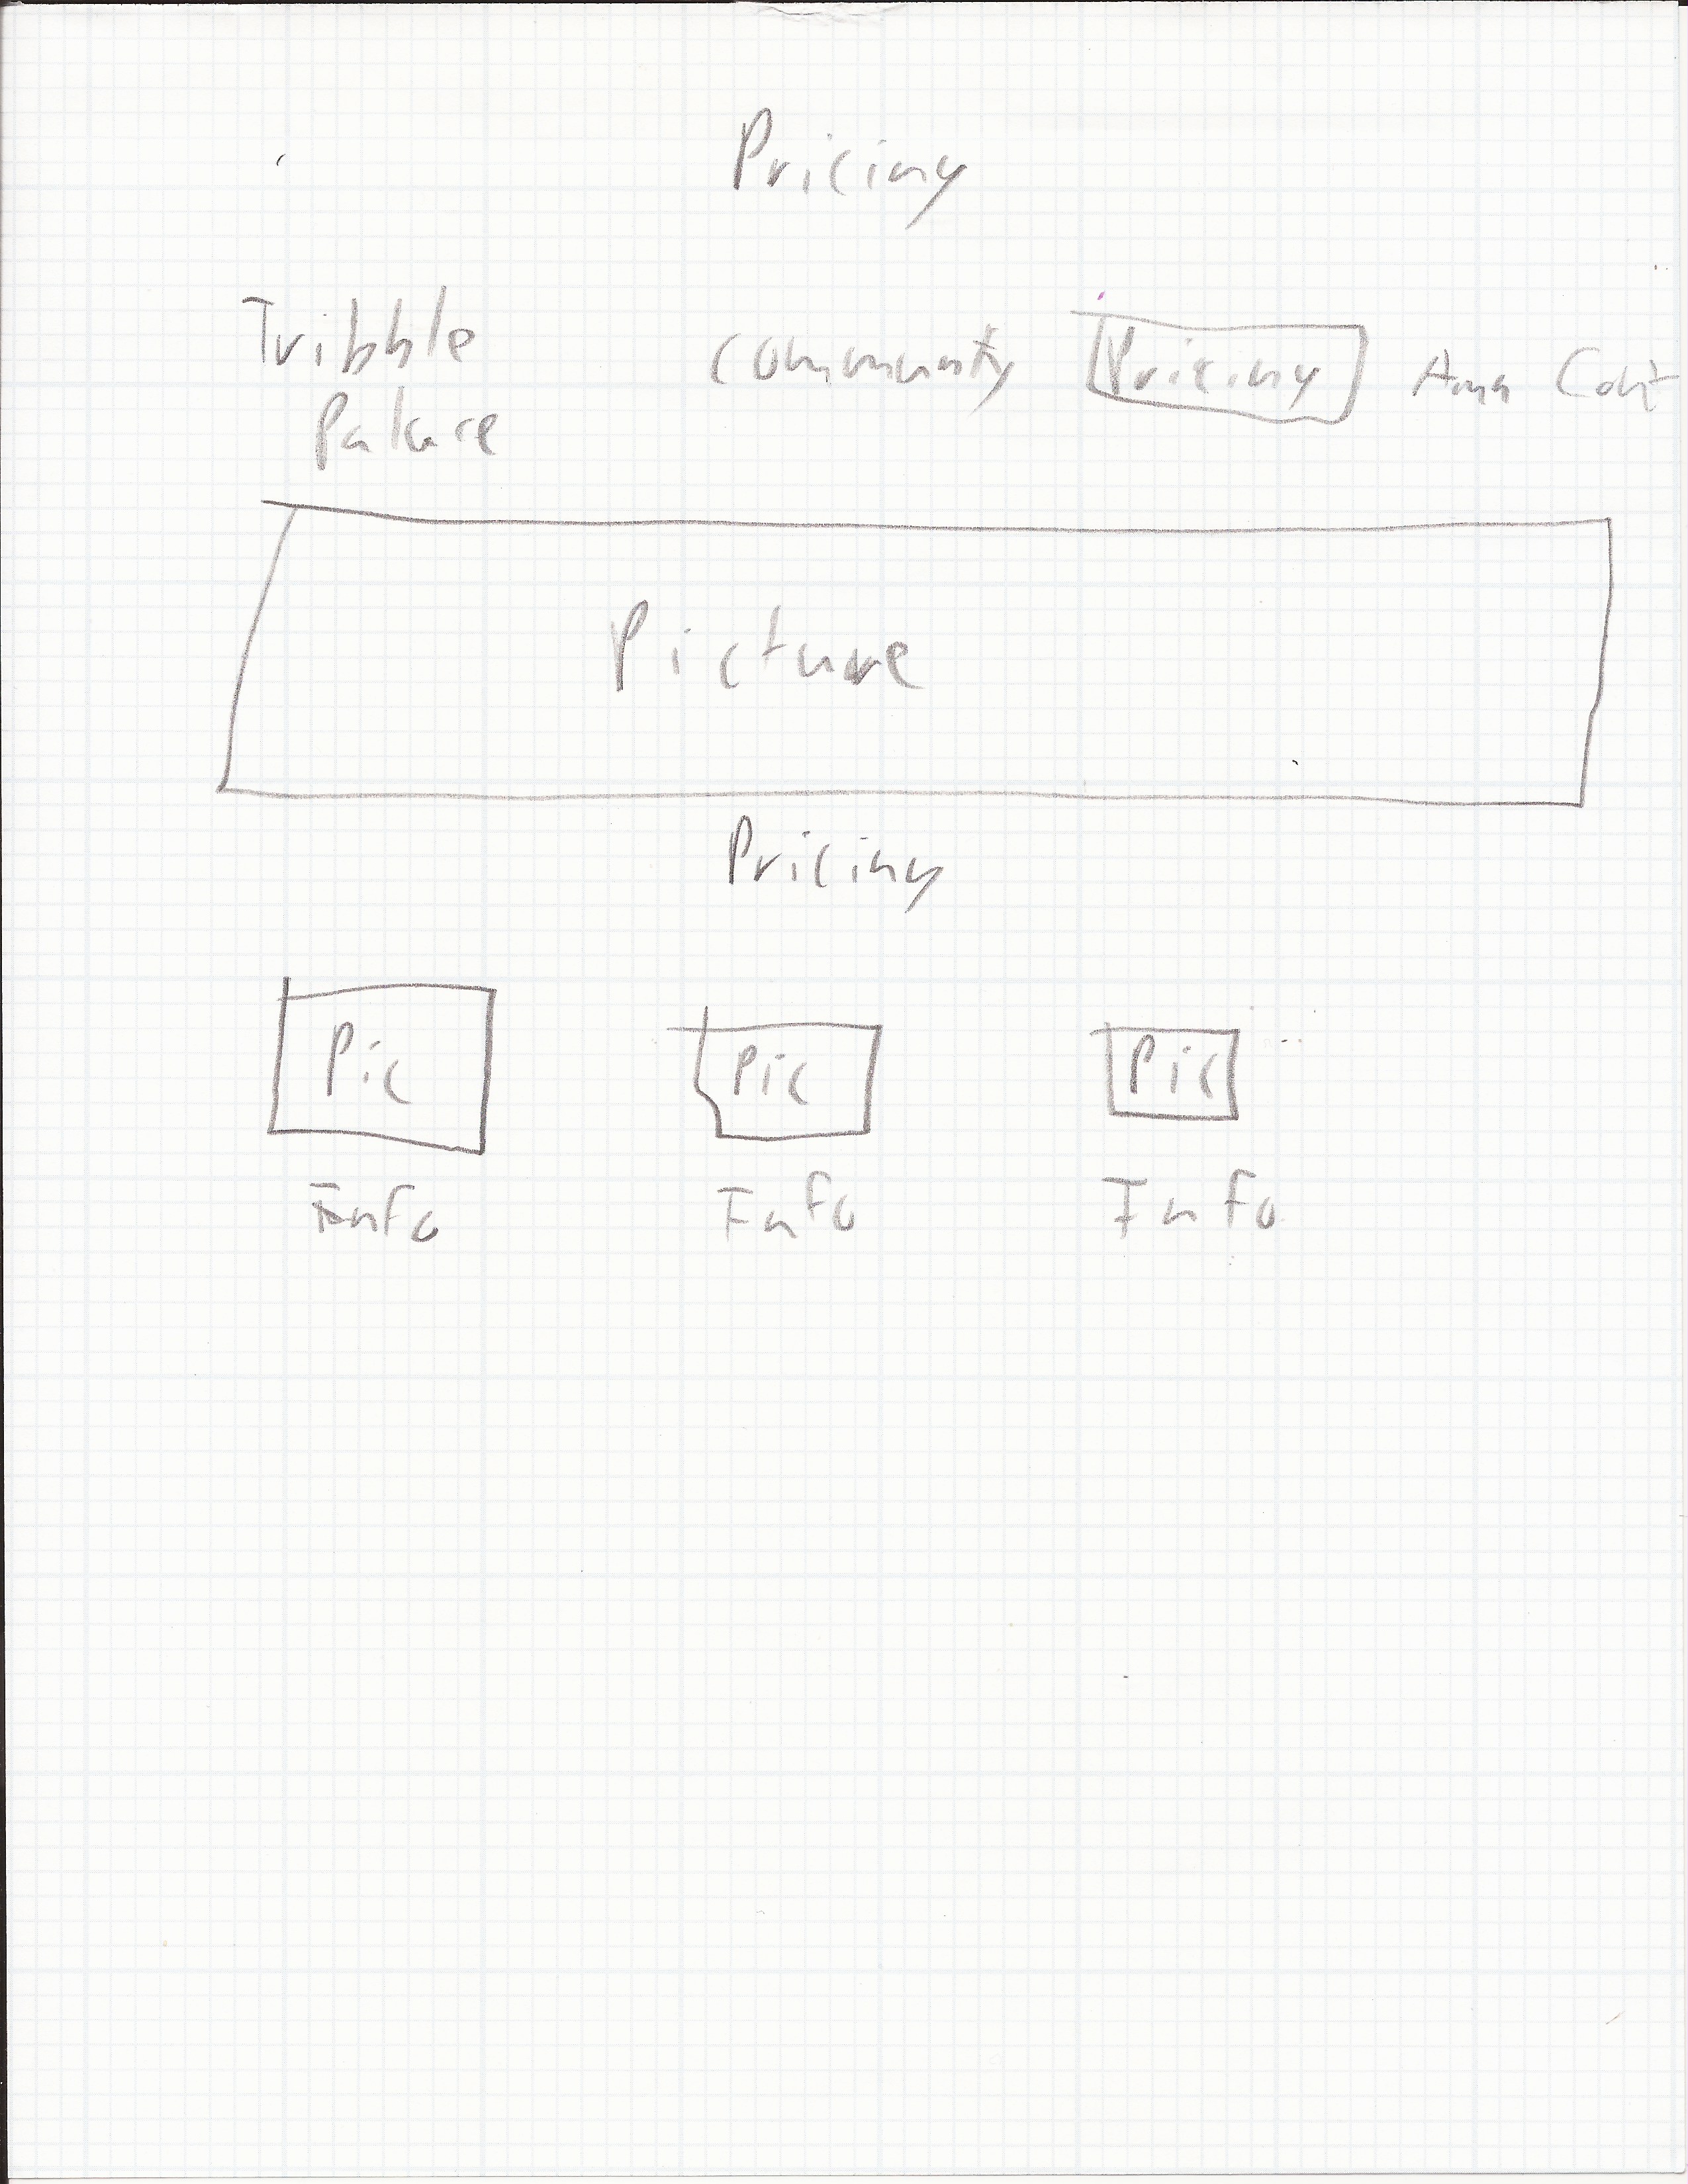 Pricing
Tribble
Palace
Community Pricing Amn Cont
Picture
Pricing
Pic Pic Pic
Info Info Info